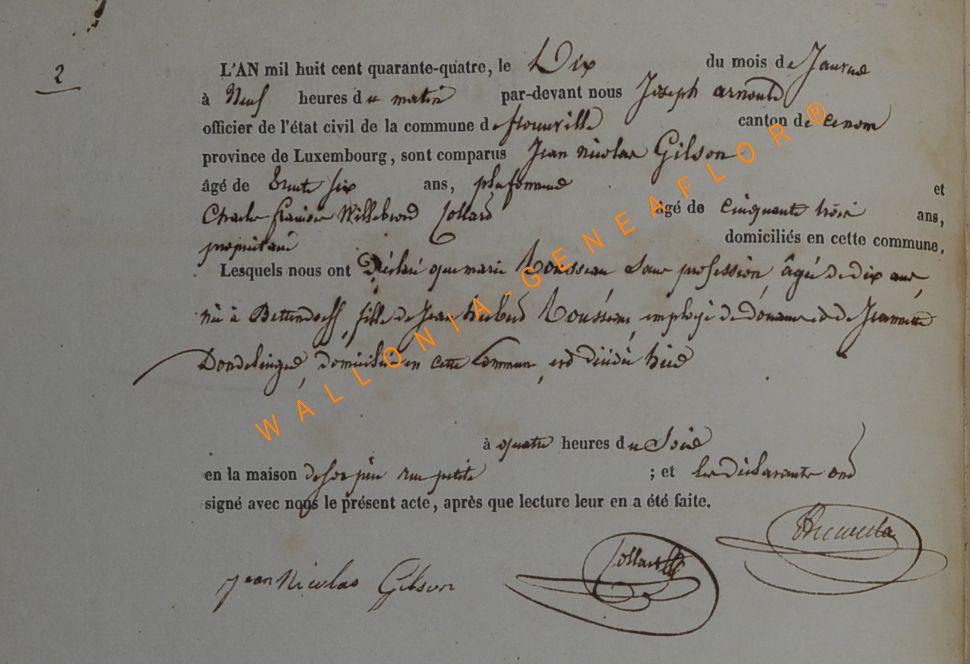 2
L'AN mil huit cent quarante-quatre, le Dix du mois de Janvier
à Neuf heures du matin par-devant nous Joseph arnould
officier de l'état civil de la commune de florenville canton de
province de Luxembourg, sont comparus Jean Nicolas Gilson
âgé de trente six ans, et
Charles Willebrord Collard âgé de cinquante trois ans,
propriétaire domiciliés en cette commune,
Lesquels nous ont Déclaré que marie Rousseau sans profession, âgée de dix ans,
née à Bettendorff, fille de Jean Rousseau, employé de douane et de Jeannette
Dondelinger, domiciliés en cette Commune, est décédée hier
à quatre heures du Soir
en la maison de son père rue petite ; et les déclarants ont
signé avec nous le présent acte, après que lecture leur en a été faite.
Jean Nicolas Gilson Collard
WALLONIA-GENEAFLOR ®